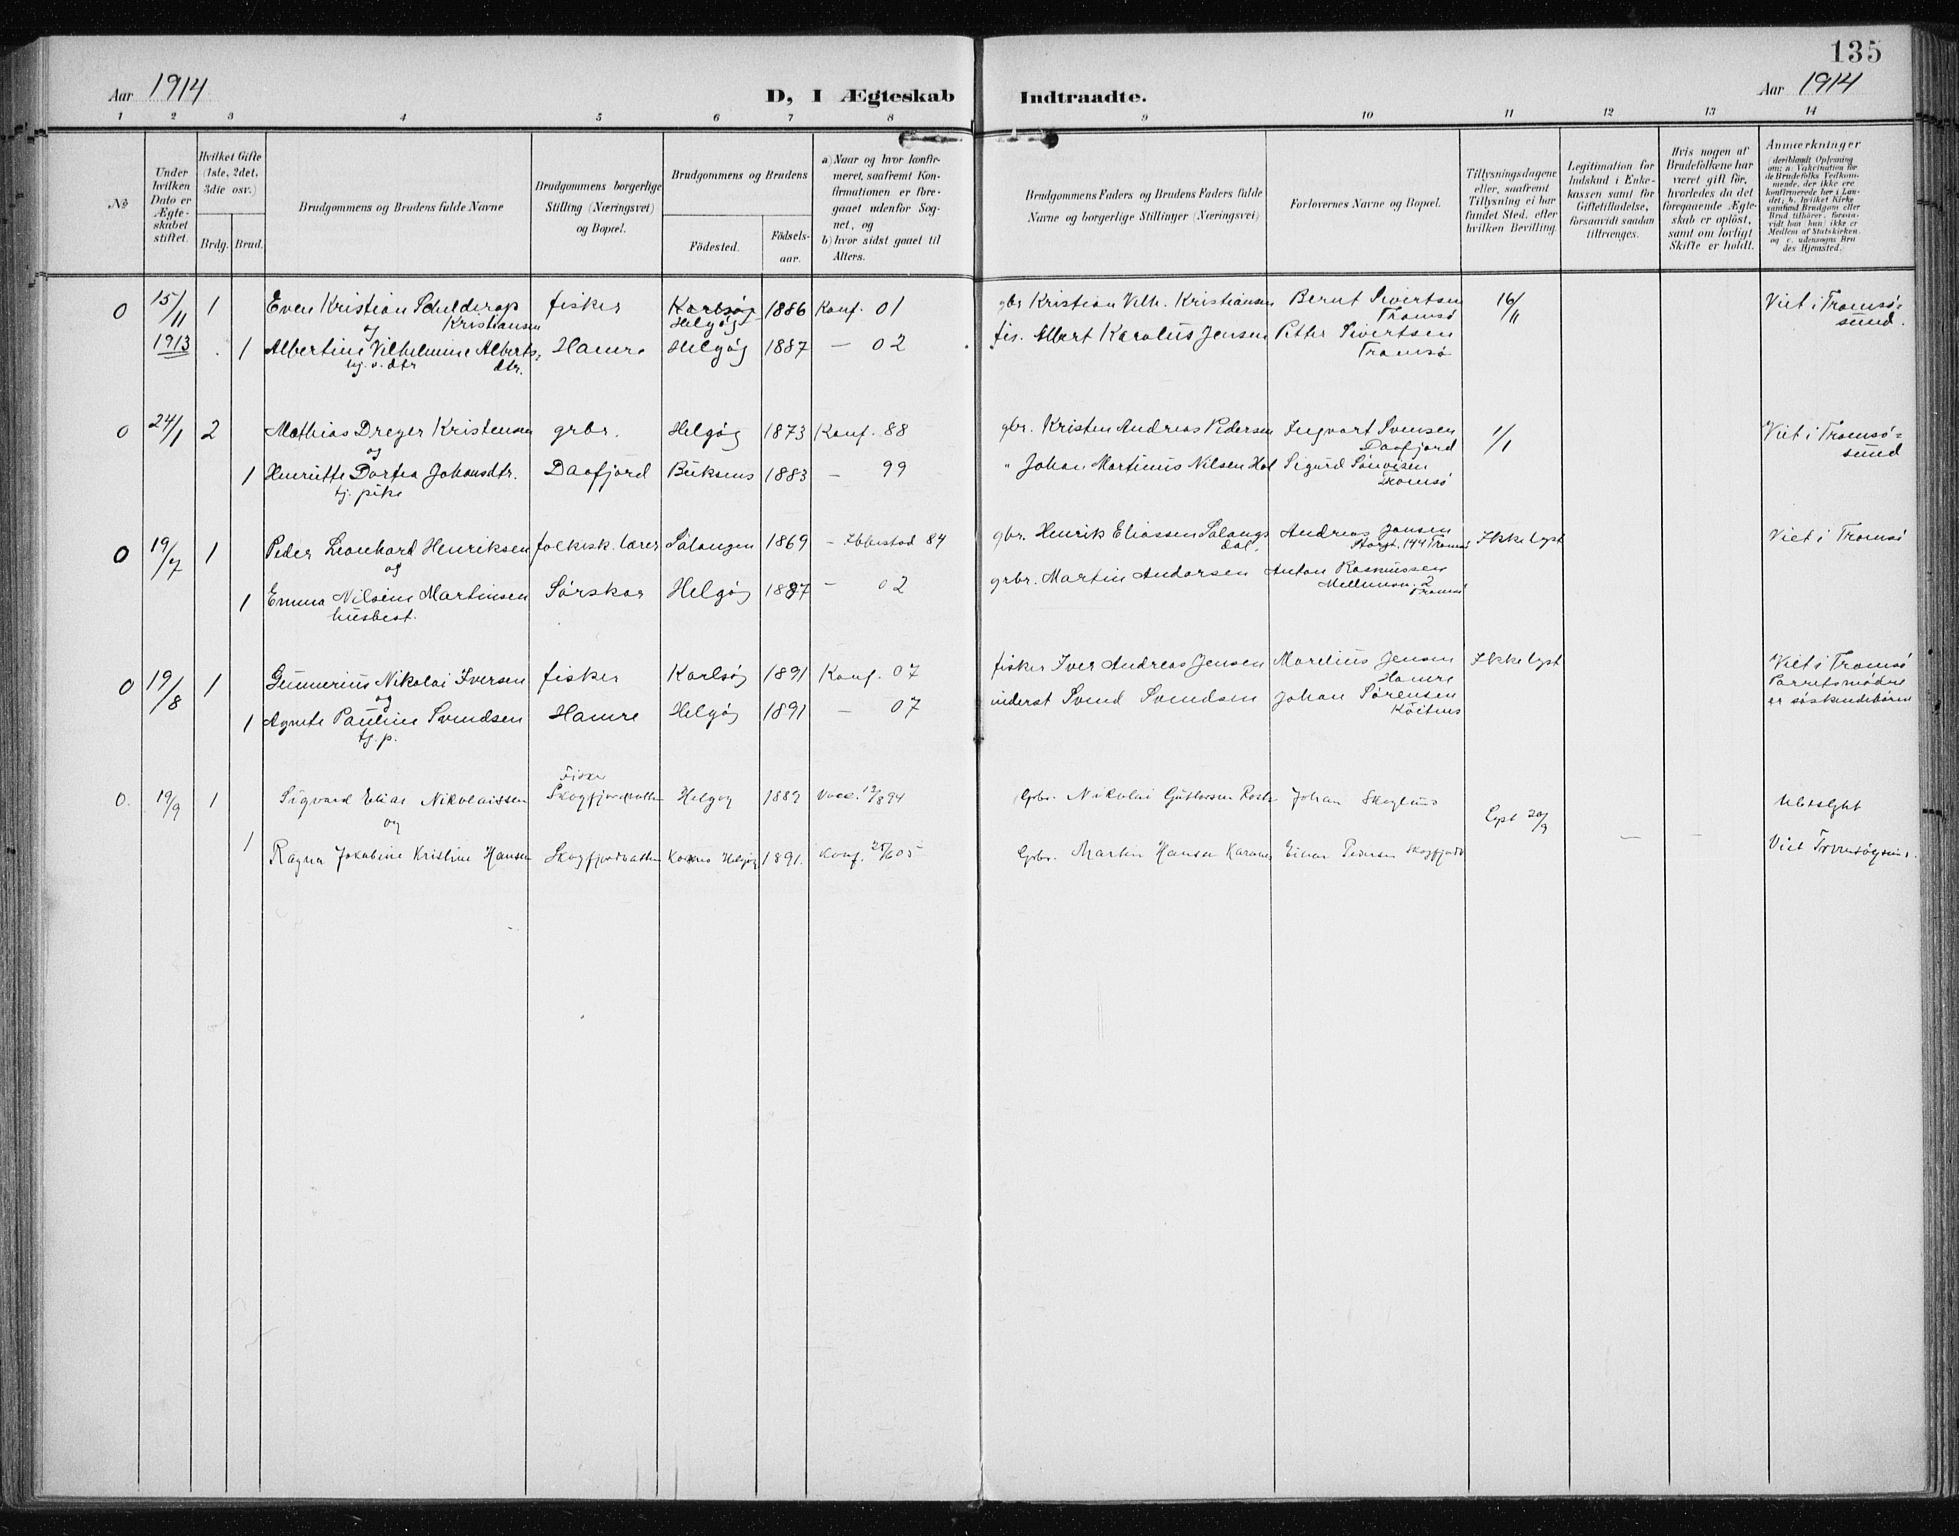 135
Aar 1914
D, I Ægteskab Indtraadte.
Aar 1914
1 2 3 4 5 6 7 8 9 10 11 12 13 14
No
Under hvilken Dato er Ægteskabet stiftet.
Hvilket Gifte (1ste, 2det, 3die osv.)
Brdg. Brud.
Brudgommens og Brudens fulde Navne
Brudgommens borgerlige Stilling (Næringsvei) og Bopæl.
Brudgommens og Brudens
Födested.
Födselsaar.
a) Naar og hvor konfirmeret, saafremt Konfirmationen er foregaaet udenför Sognet, og
b) hvor sidst gaaet til Alters.
Brudgommens Faders og Brudens Faders fulde Navne og borgerlige Stillinger (Næringsvei)
Forlovernes Navne og Bopæl.
Tillysningsdagene eller, saafremt Tillysning ei har fundet Sted, efter hvilken Bevilling.
Legitimation for Indskud i Enkekassen samt for Giftetilladelse, forsaavidt saadan tiltrænges.
Hvis nogen af Brudefolkene har været gift för, hvorledes da det foregaaende Ægteskab er oplöst, samt om lovligt Skifte er holdt.
Anmærkninger
(deriblandt Oplysning om: a. Vakcination for de Brudefolks Vedkommende, der ikke ere konfirmerede her i Landet; b. hvilket Kirkesamfund Brudgom eller Brud tilhörer, forsaavidt han (hun) ikke er Medlem af Statskirken, og c. udensogns Brudes Hjemsted.)
0 15/11 1 Even Kristian Schulderop Kristiansen fisker Karlsøy Helgøy 1886 Konf. 01 gbr Kristian Vilh. Kristiansen Bernt Sivertsen Tromsø 16/11 Viet i Tromsøsund.
og
1913 1 Albertine Vilhelmine Albertsdtr. Hamre Helgøy 1887 — 02 fis. Albert Karolus Jensen Petter Sivertsen Tromsø
hj. v. dtr
0 24/1 2 Mathias Dreyer Kristensen grbr. Helgøy 1873 Konf. 88 gbr. Kristen Andreas Pedersen Ingvart Svensen Daafjord 1/1 Viet i Tromsøsund
og
1 Henriette Dortea Johansdtr. Daafjord Buksnes 1883 — 99 " Johan Martinus Nilsen Hol Sigurd Tromsø
tj. pike
0 19/7 1 Peder Leonhard Henriksen folkesk. lærer Salangen 1869 — Ibbestad 84 gbr. Henrik Eliassen Salangsdal. Andreas Jensen Storgt. 144 Tromsø Ikke lyst Viet i Tromsø
og
1 Emma Nilsine Martinsen Sørskar Helgøy 1887 — 02 grbr. Martin Andersen Anton Rasmussen 2 Tromsø
husbest.
0 19/8 1 Gunnerius Nikolai Iversen fisker Karlsøy 1891 Konf. 07 fisker Iver Andreas Jensen Marelius Jensen Hamre Ikke lyst Viet i Tromsø
og Parrets mødre
1 Agnete Pauline Svendsen Hamre Helgøy 1891 — 07 inderst Svend Svendsen Johan Sørensen er søskendebørn
tj. p.
Fisker
0. 19/9 1 Sigvard Elias Nikolaissen Skogfjordvatten Helgøy 1889 Vacc. 12/8 94 Grbr. Nikolai Johan
og Lyst 20/9
1 Ragna Jakobine Kristine Hansen Skogfjordvatten Helgøy 1891. Konf. 25/6 05 Grbr. Martin Hansen Pedersen Skogfjord — — Viet Tromsøysund.